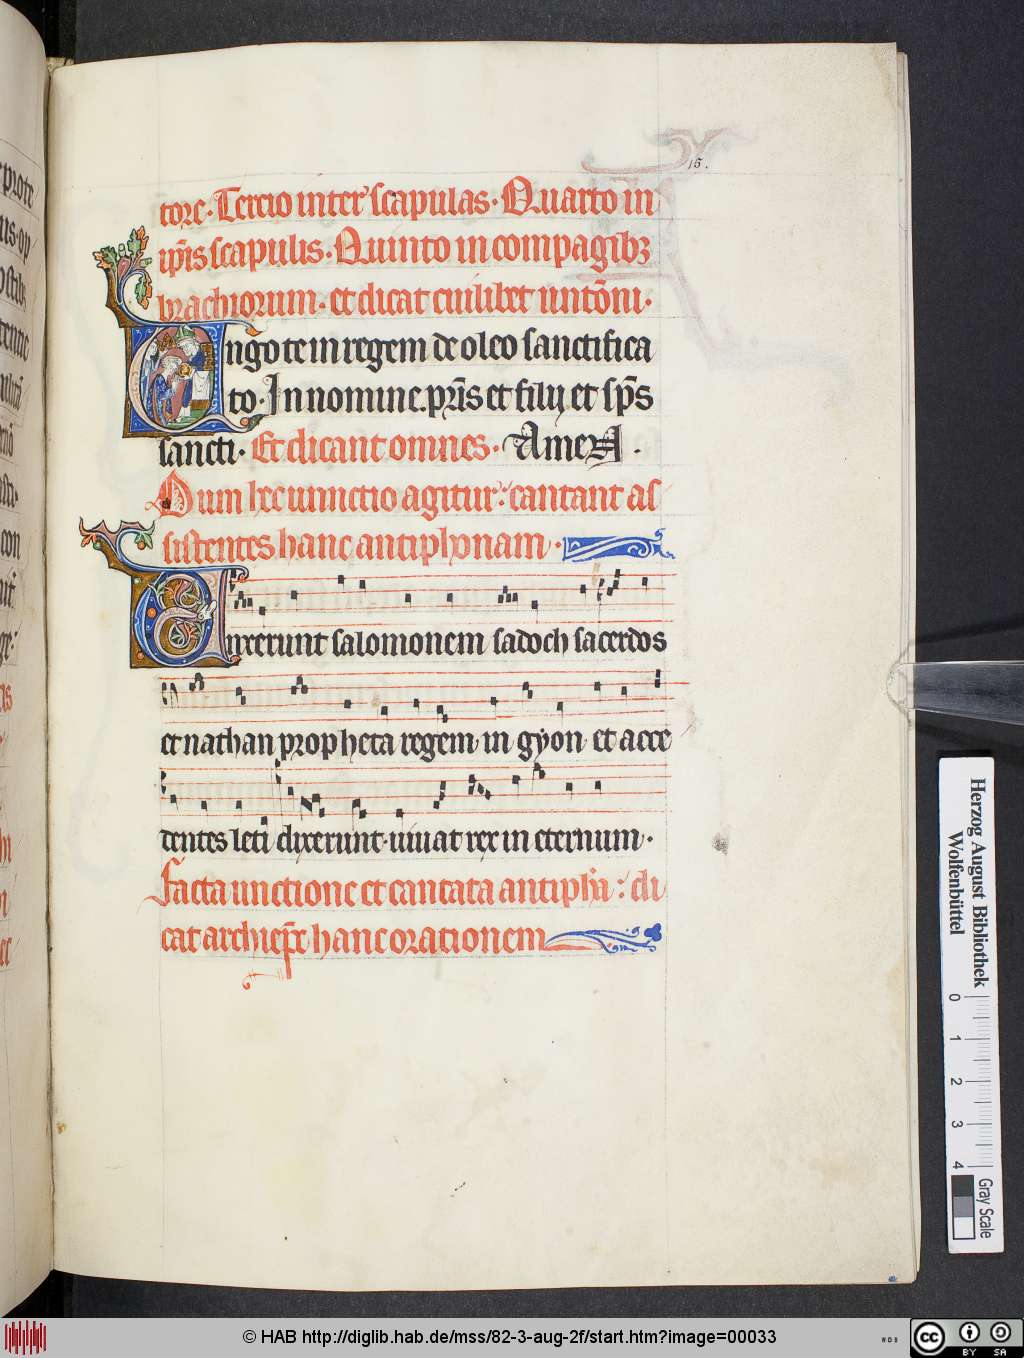 15.
tore. Tercio inter scapulas. Quarto in
ip̃is scapulis. Quinto in compagibꝫ
brachiorum. et dicat cuilibet unt̃oni.
Ungo te in regem de oleo sanctifica
to. In nomine. pr̃is et filij et sp̃s
sancti. Et dicant omnes. Amen.
Dum hec uunctio agitur: cantant as
sistentes hanc antiphonam.
Unxerunt salomonem sadoch sacerdos
et nathan propheta regem in gyon et acce
dentes leti dixerunt. uiuat rex in eternum.
Facta unctione et cantata antiphã: di
cat archiep̃c hanc orationem
Herzog August Bibliothek
Wolfenbüttel
0 1 2 3 4
Gray Scale
© HAB http://diglib.hab.de/mss/82-3-aug-2f/start.htm?image=00033
cc BY SA